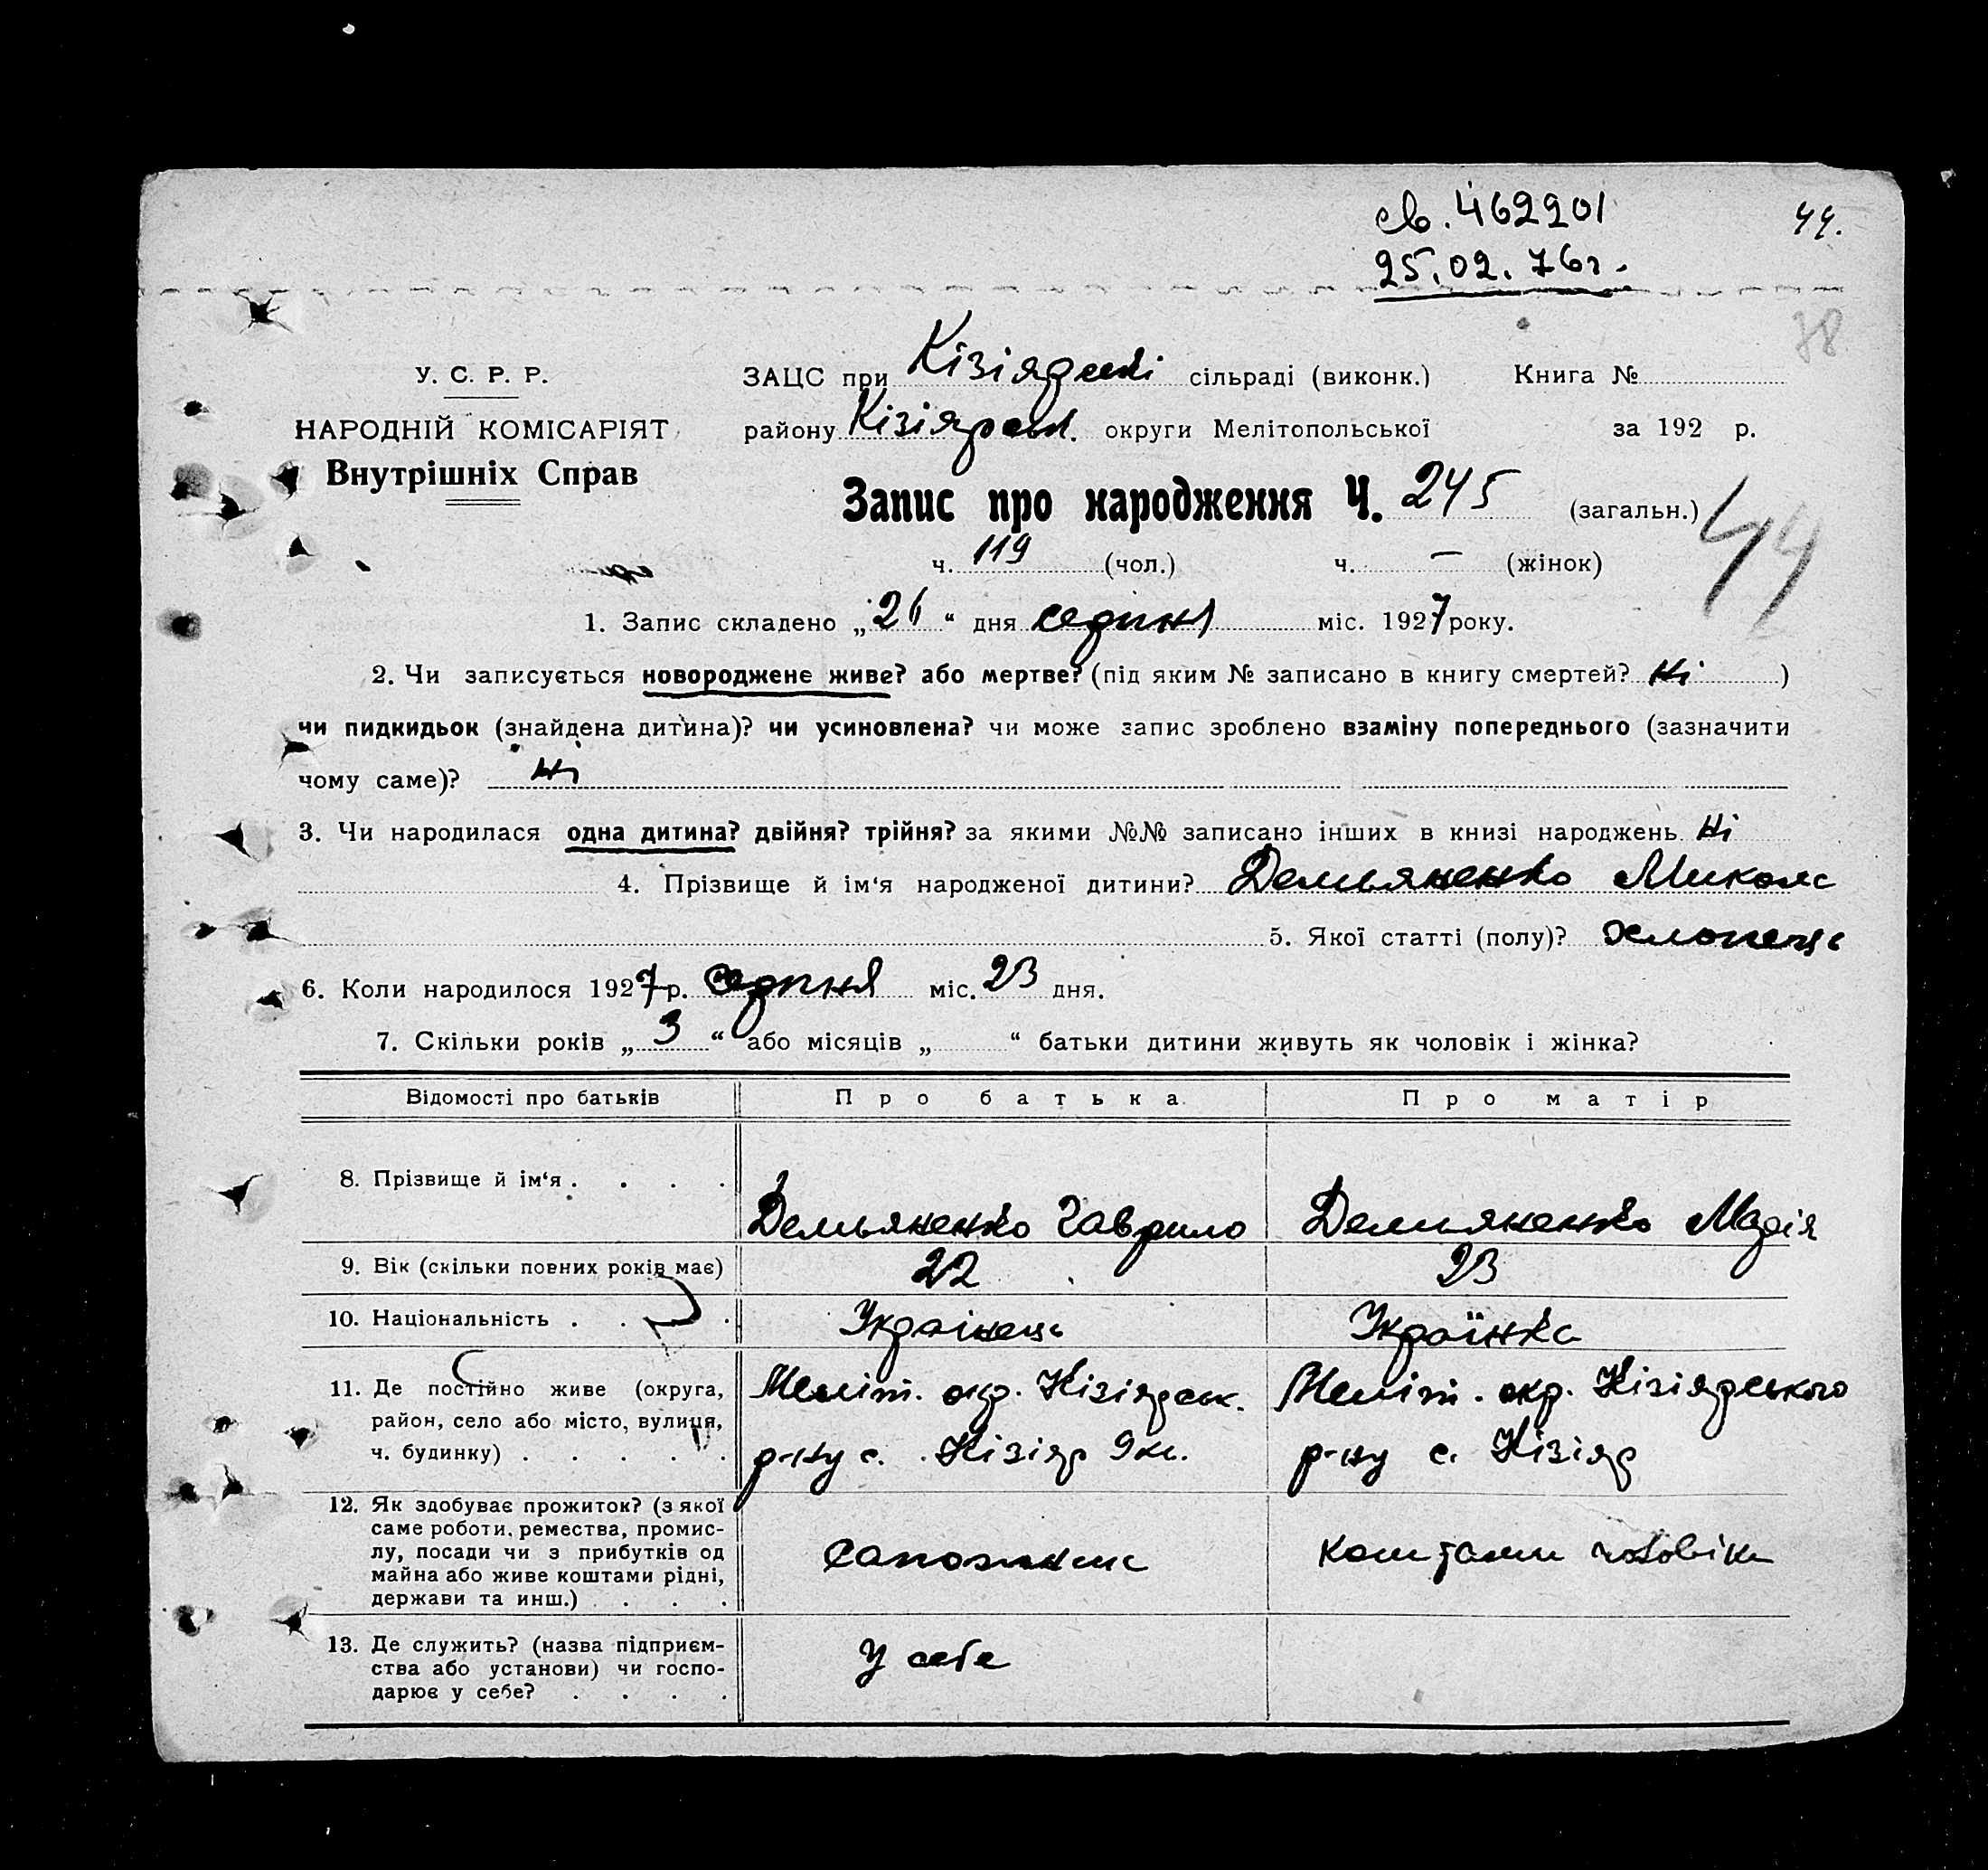 св. 462201
44.
25.02.76г.
78
У. С. Р. Р.
ЗАЦС при Кізіярській сільраді (виконк.) Книга №
НАРОДНІЙ КОМІСАРІЯТ
району Кізіярськ. округи Мелітопольської за 192 р.
Внутрішніх Справ
Запис про народження Ч. 245 (загальн.)
44
ч. 119 (чол.) ч. — (жінок)
1. Запис складено „26“ дня серпня міс. 1927 року.
2. Чи записується новороджене живе? або мертве? (під яким № записано в книгу смертей? Ні)
чи пидкидьок (знайдена дитина)? чи усиновлена? чи може запис зроблено взаміну попереднього (зазначити
чому саме)? Ні
3. Чи народилася одна дитина? двійня? трійня? за якими №№ записано інших в книзі народжень Ні
4. Прізвище й ім‘я народженої дитини? Демьяненко Микола
5. Якої статті (полу)? хлопець
6. Коли народилося 1927 р. серпня міс. 23 дня.
7. Скільки років „3“ або місяців „ “ батьки дитини живуть як чоловік і жінка?
Відомості про батьків Про батька Про матір
8. Прізвище й ім‘я . . . . Демьяненко Гаврило Демьяненко Марія
9. Вік (скільки повних років має) 22 23
10. Національність . . . Українець Українка
11. Де постійно живе (округа,
район, село або місто, вулиця,
ч. будинку) . . . . .
Меліт. окр. Кізіярськ.
р-ну с. Кізіяр
Меліт. окр. Кізіярського
р-ну с. Кізіяр
12. Як здобуває прожиток? (з якої
саме роботи, ремества, промис-
лу, посади чи з прибутків од
майна або живе коштами рідні,
держави та инш.) . . . .
сапожник
коштами чоловіка
13. Де служить? (назва підприєм-
ства або установи) чи госпо-
дарює у себе? . . . .
У себе